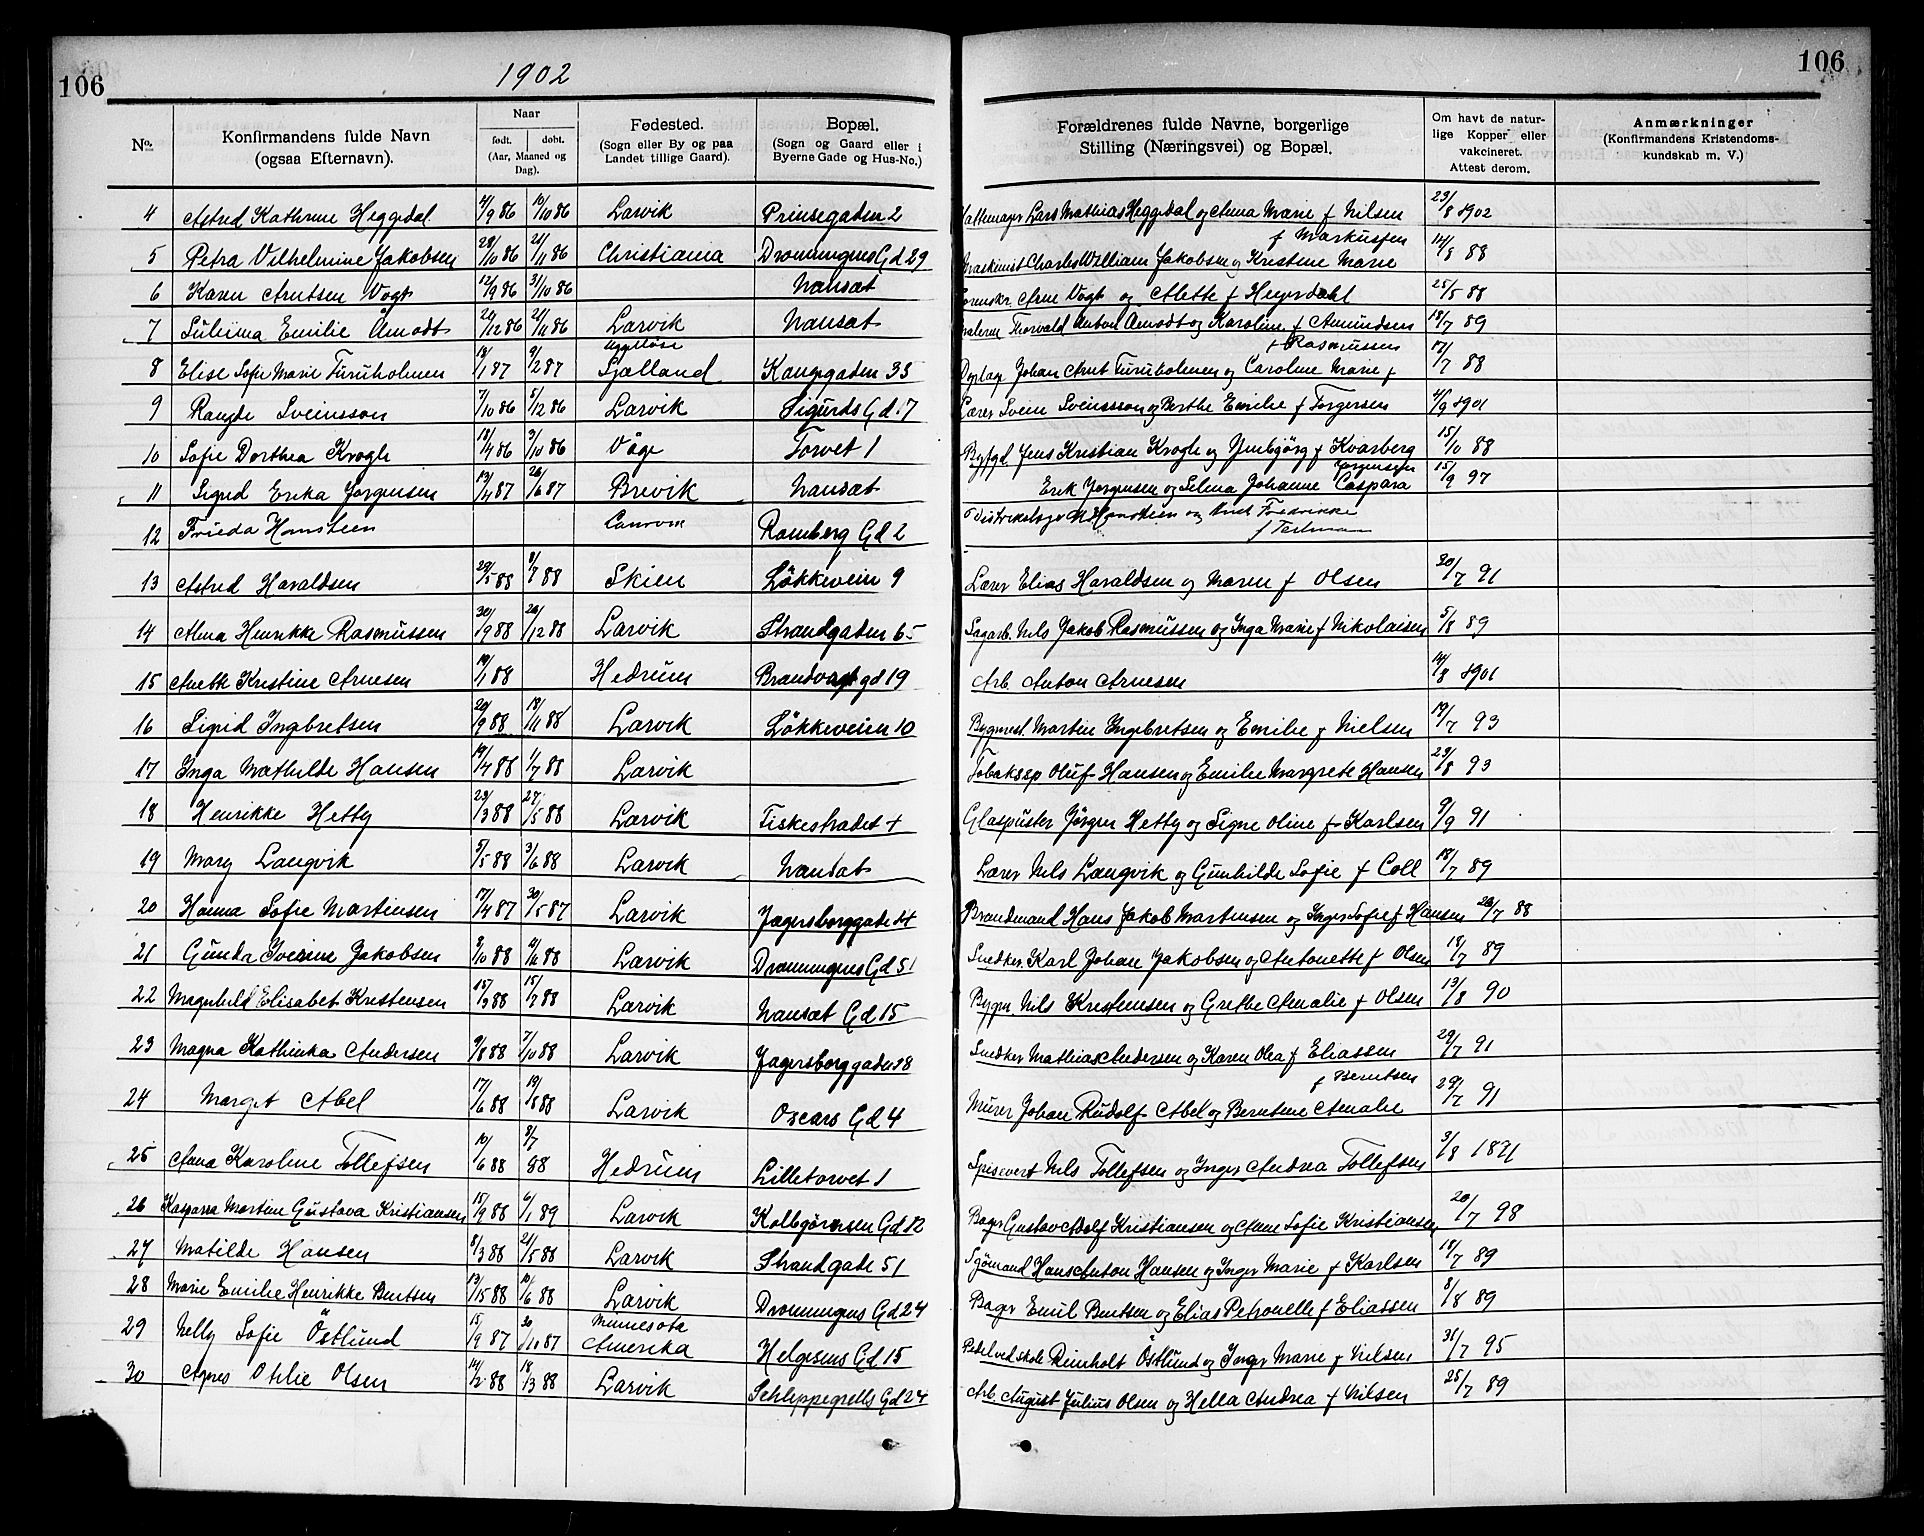 106
1902
106
No.
Konfirmandens fulde Navn
(ogsaa Efternavn).
Naar
født. døbt.
(Aar, Maaned og Dag).
Fødested.
(Sogn eller By og paa
Landet tillige Gaard).
Bopæl.
(Sogn og Gaard eller i
Byerne Gade og Hus-No.)
Forældrenes fulde Navne, borgerlige
Stilling (Næringsvei) og Bopæl.
Om havt de natur-
lige Kopper eller
vakcineret.
Attest derom.
Anmærkninger
(Konfirmandens Kristendoms-
kundskab m. V.)
4 Astred Kathrine Heggedal 4/9 86 10/10 86 Larvik Prinsegaden 2 Lars Mathias Heggedal og Anna Marie f Nilsen 23/8 1902
f Markussen
5 Petra Vilhelmine Jakobsen 28/10 86 21/11 86 Christiania Dronningens Gd 29 Maskinist Charles William Jakobsen og Kristine Marie 14/8 88
6 Karen Arntsen Vogt 12/9 86 31/10 86 Nansæt Sorenskr. Arne Vogt og Alette f Heyerdahl 25/5 88
7 Sulima Emilie Åmodt 24/12 86 21/11 86 Larvik Nansæt Thorvald Anton Åmodt og Karoline f Amundsen 18/7 89
f Rasmussen
8 Elise Sofie Marie Furuholmen 18/1 87 9/2 87 Sjælland Kongegaden 35 Johan Arnt Furuholmen og Caroline Marie f 17/7 88
9 Rangde Sveinsson 7/10 86 5/12 86 Larvik Sigurds Gd 17 Lærer Svein Sveinsson og Berthe Emilie f Torgersen 4/9 1901
10 Sofie Dorthea Krogh 18/4 86 3/10 86 Våge Torvet 1 Bygfgd. Jens Kristian Krogh og Ymbjörg f Kvarberg 15/10 88
Jörgensen
11 Sigrid Erika Jörgensen 13/4 87 26/6 87 Brevik Nansæt Erik Jörgensen og Selma Johanne Caspara 15/9 97
12 Frieda Homsteen Ramberg Gd 2 Distriktslæge Homsteen og Fredrikke
13 Astred Haraldsen 29/5 88 8/7 88 Skien Lökkeveien 9 Lærer Elias Haraldsen og Maren f Olsen 20/7 91
14 Alma Henrikke Rasmussen 30/9 88 26/12 88 Larvik Strandgaden 65 Sagarb. Nils Jakob Rasmussen og Inga Marie f Nikolaisen 5/8 89
15 Anette Kristine Arnesen 19/1 88 Hedrum Brandvagt gd 19 Arb. Anton Arnesen 14/8 1901
16 Sigrid Ingbretsen 20/9 88 18/11 88 Larvik Lökkeveien 10 Bygmest. Martin Ingebretsen og Emilie f Nielsen 19/7 93
17 Inga Mathilde Hansen 19/4 88 1/7 88 Larvik Tobakssp Oluf Hansen og Emilie Margrete Hansen 29/8 93
18 Henrikke Hetty 23/3 88 27/5 88 Larvik Fiskestrædet 4 Glaspuster Jörgen Hetty og Signe Oline f Karlsen 9/9 91
19 Mary Langvik 5/5 88 3/6 88 Larvik Nansæt Lærer Nils Langvik og Gunhilde Sofie f Coll 18/7 89
20 Hanna Sofie Martinsen 17/4 87 30/5 87 Larvik Jegersborggade 44 Brandmand Hans Jakob Martinsen og Inger Sofie f Hansen 26/7 88
21 Gunda Iverine Jakobsen 3/10 88 88 Larvik Dronningens Gd 51 Snedker. Karl Johan Jakobsen og Antonette f Olsen 18/7 89
22 Magnhild Elisabet Kristensen 15/3 88 15/7 88 Larvik Nansæt Gd 15 Bygm. Nils Kristensen og Grethe Amalie f Olsen 13/8 90
23 Magna Kathinka Andersen 9/8 88 7/10 88 Larvik Jegersborggaden 38 Snedker Mathias Andersen og Karen Olea f Eliassen 29/7 91
f Berntsen
24 Margit Abel 17/6 88 19/8 88 Larvik Oscars Gd 4 Murer Johan Rudolf Abel og Berntine Amalie 29/7 91
25 Anna Karoline Tollefsen 10/6 88 8/7 88 Hedrum Lilletorvet 1 Spisevert Nils Tollefsen og Inger Andrea Tollefsen 3/8 1891
26 Kaspara Martine Gustava Kristiansen 15/9 88 6/1 89 Larvik Kolbjörnsen Gd 12 Bager Gustav Adolf Kristiansen og Anne Sofie Kristiansen 20/7 98
27 Matilde Hansen 8/3 88 21/5 88 Larvik Strandgade 51 Sjömand Hans Anton Hansen og Inger Marie f Karlsen 18/7 89
28 Marie Emilie Henrikke Bentsen 13/15 88 10/6 88 Larvik Dronningens Gd 24 Bager Emil Bentsen og Elias Petronelle f Eliassen 8/8 89
29 Nelly Sofie Östlund 15/9 87 30/10 87 Minnesota Amerika Helgesens Gd 15 Pedel ved skole Reinholt Östlund og Inger Marie f Nilsen 31/7 95
30 Agnes Othlie Olsen 14/2 88 18/3 88 Larvik Schleppegrells Gd 24 Arb. August Julius Olsen og Hella Andrea f Nilsen 25/7 89